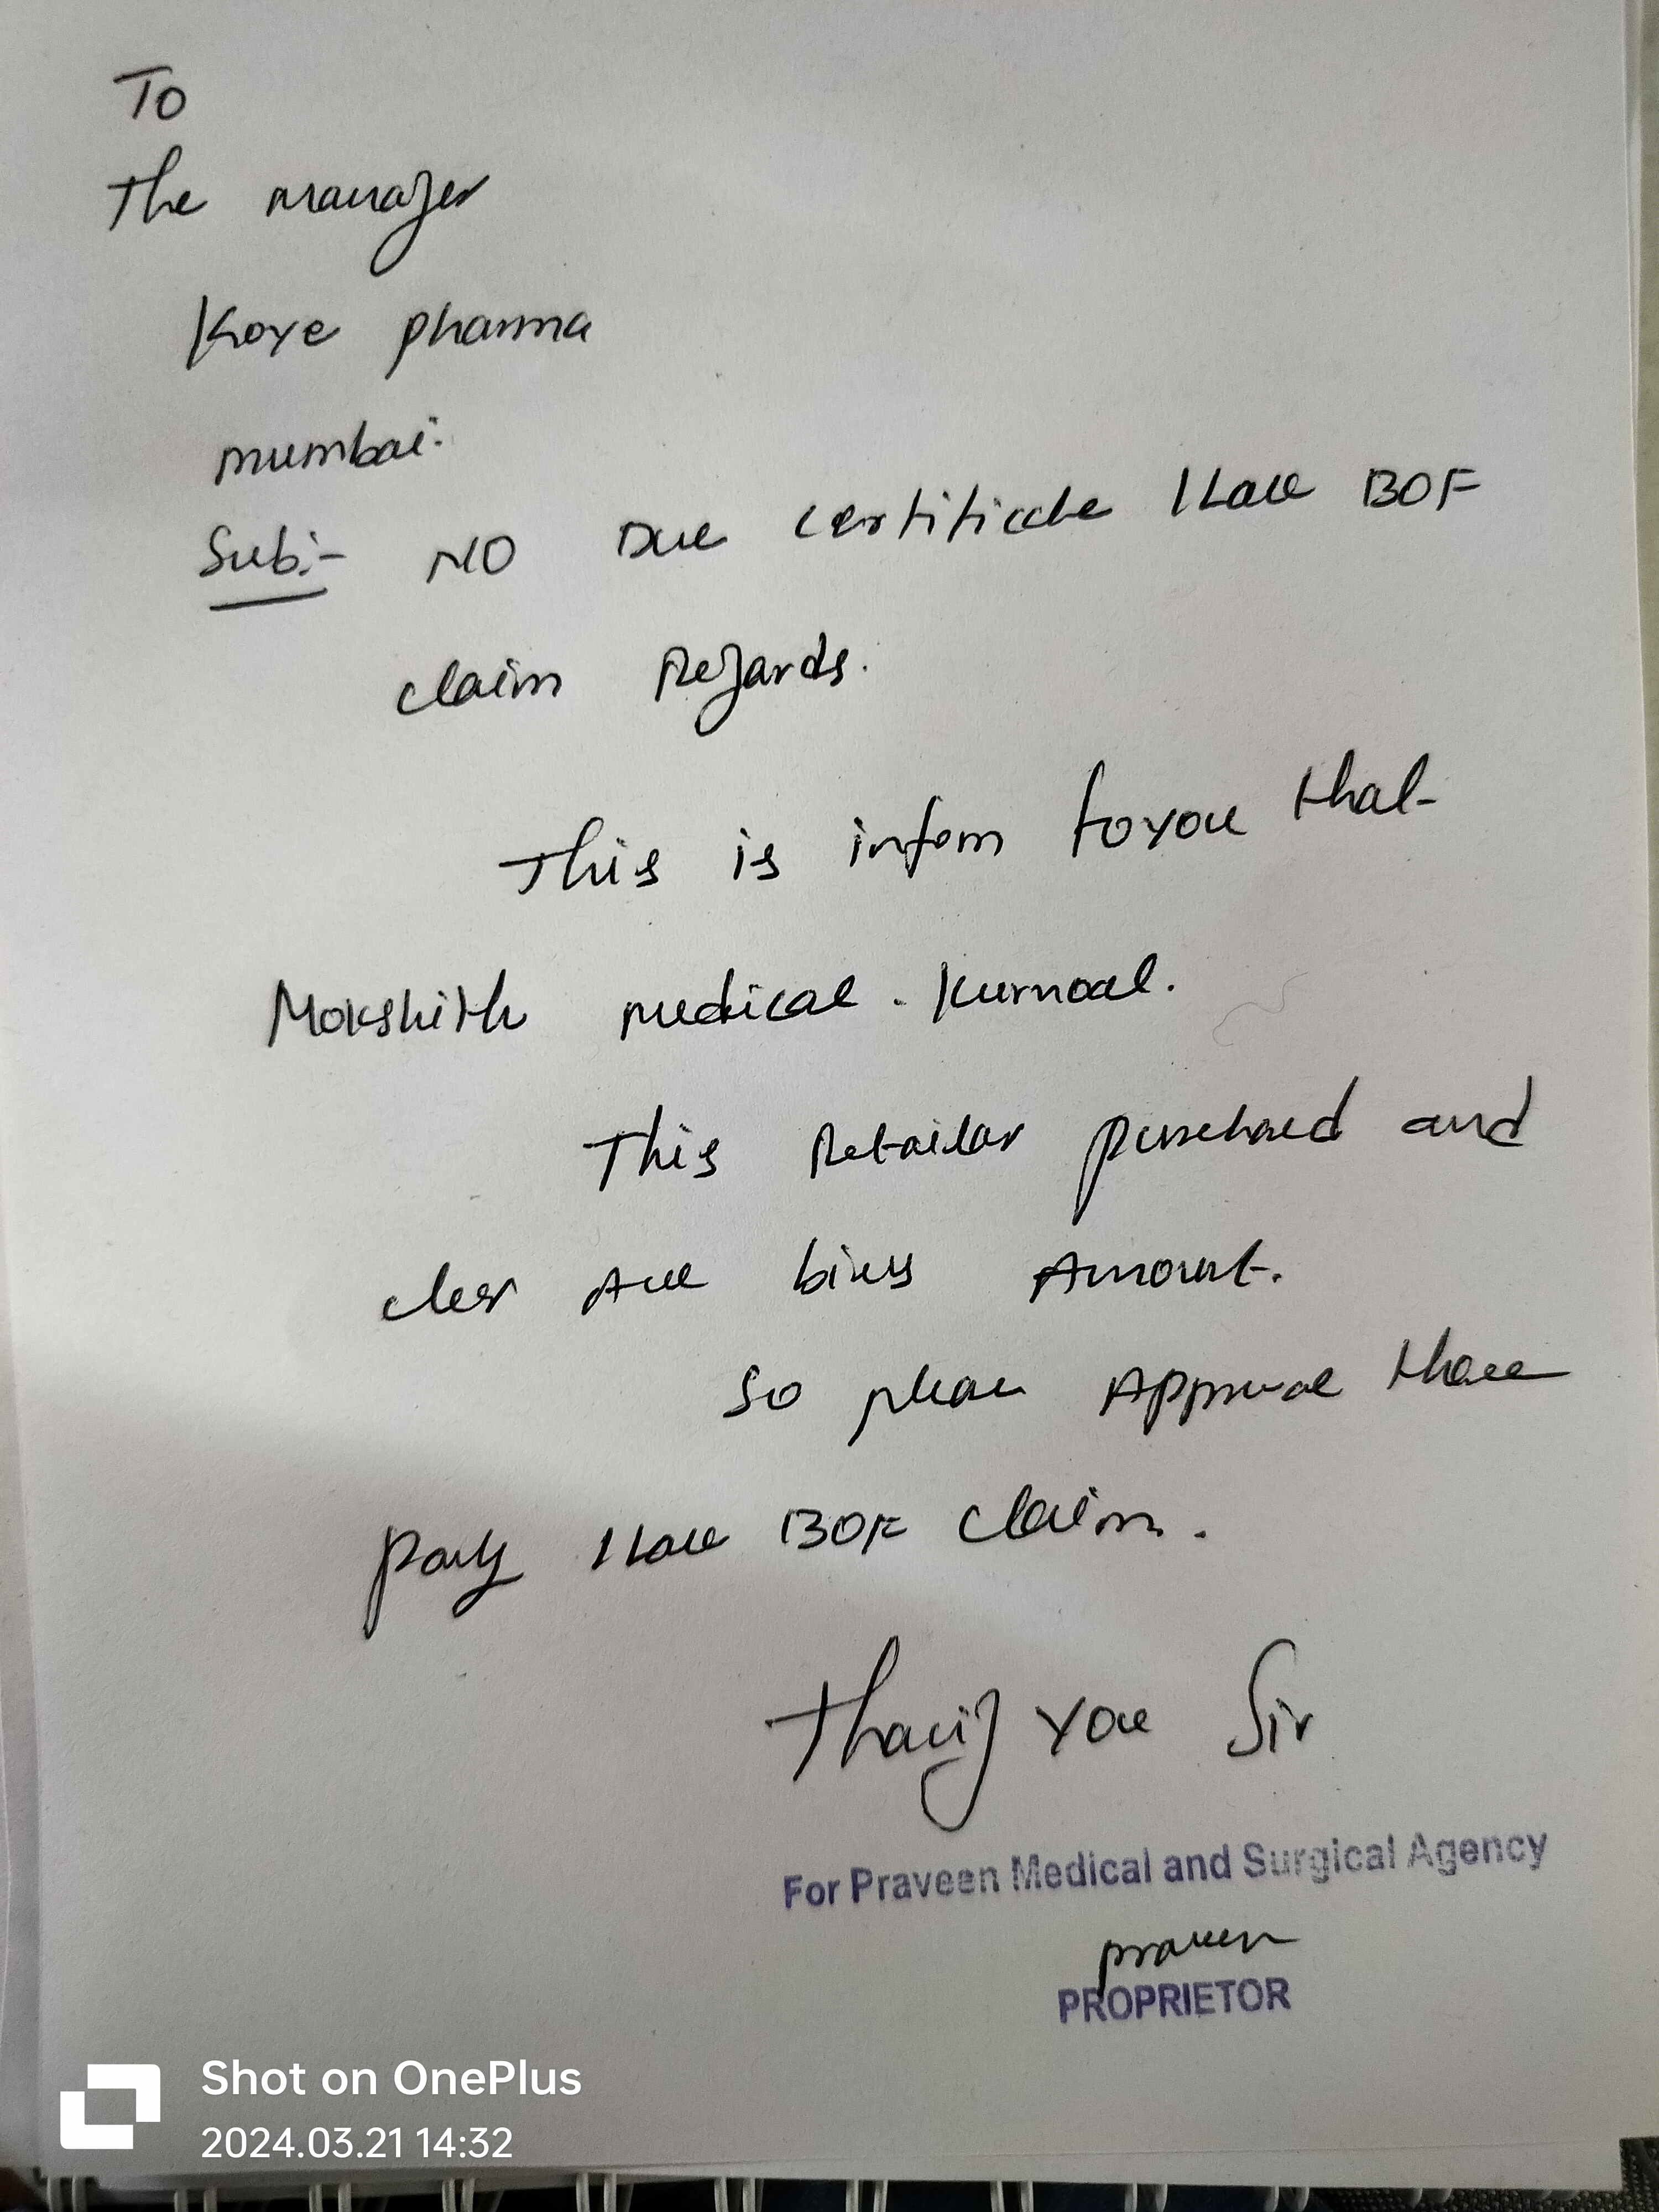 To
The manager
Koye pharma
mumbai.
Sub:- NO Due certificate 1 Lace BOF
claim Regards.
This is infom to you that
Mokshith medical . Kurnoal.
This Retailar purchaed and
cleer All bills Amount.
So please Approval these
party 1 Lace BOF claim.
Thank you Sir
For Praveen Medical and Surgical Agency
praveen
PROPRIETOR
Shot on OnePlus
2024.03.21 14:32